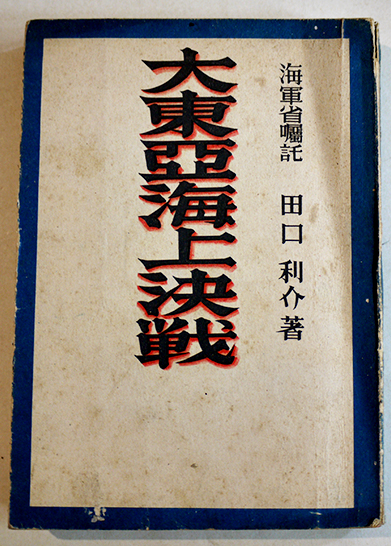 海軍省囑託 田口利介著
大東亞海上決戦